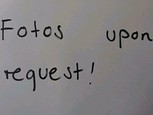 Fotos upon
request!